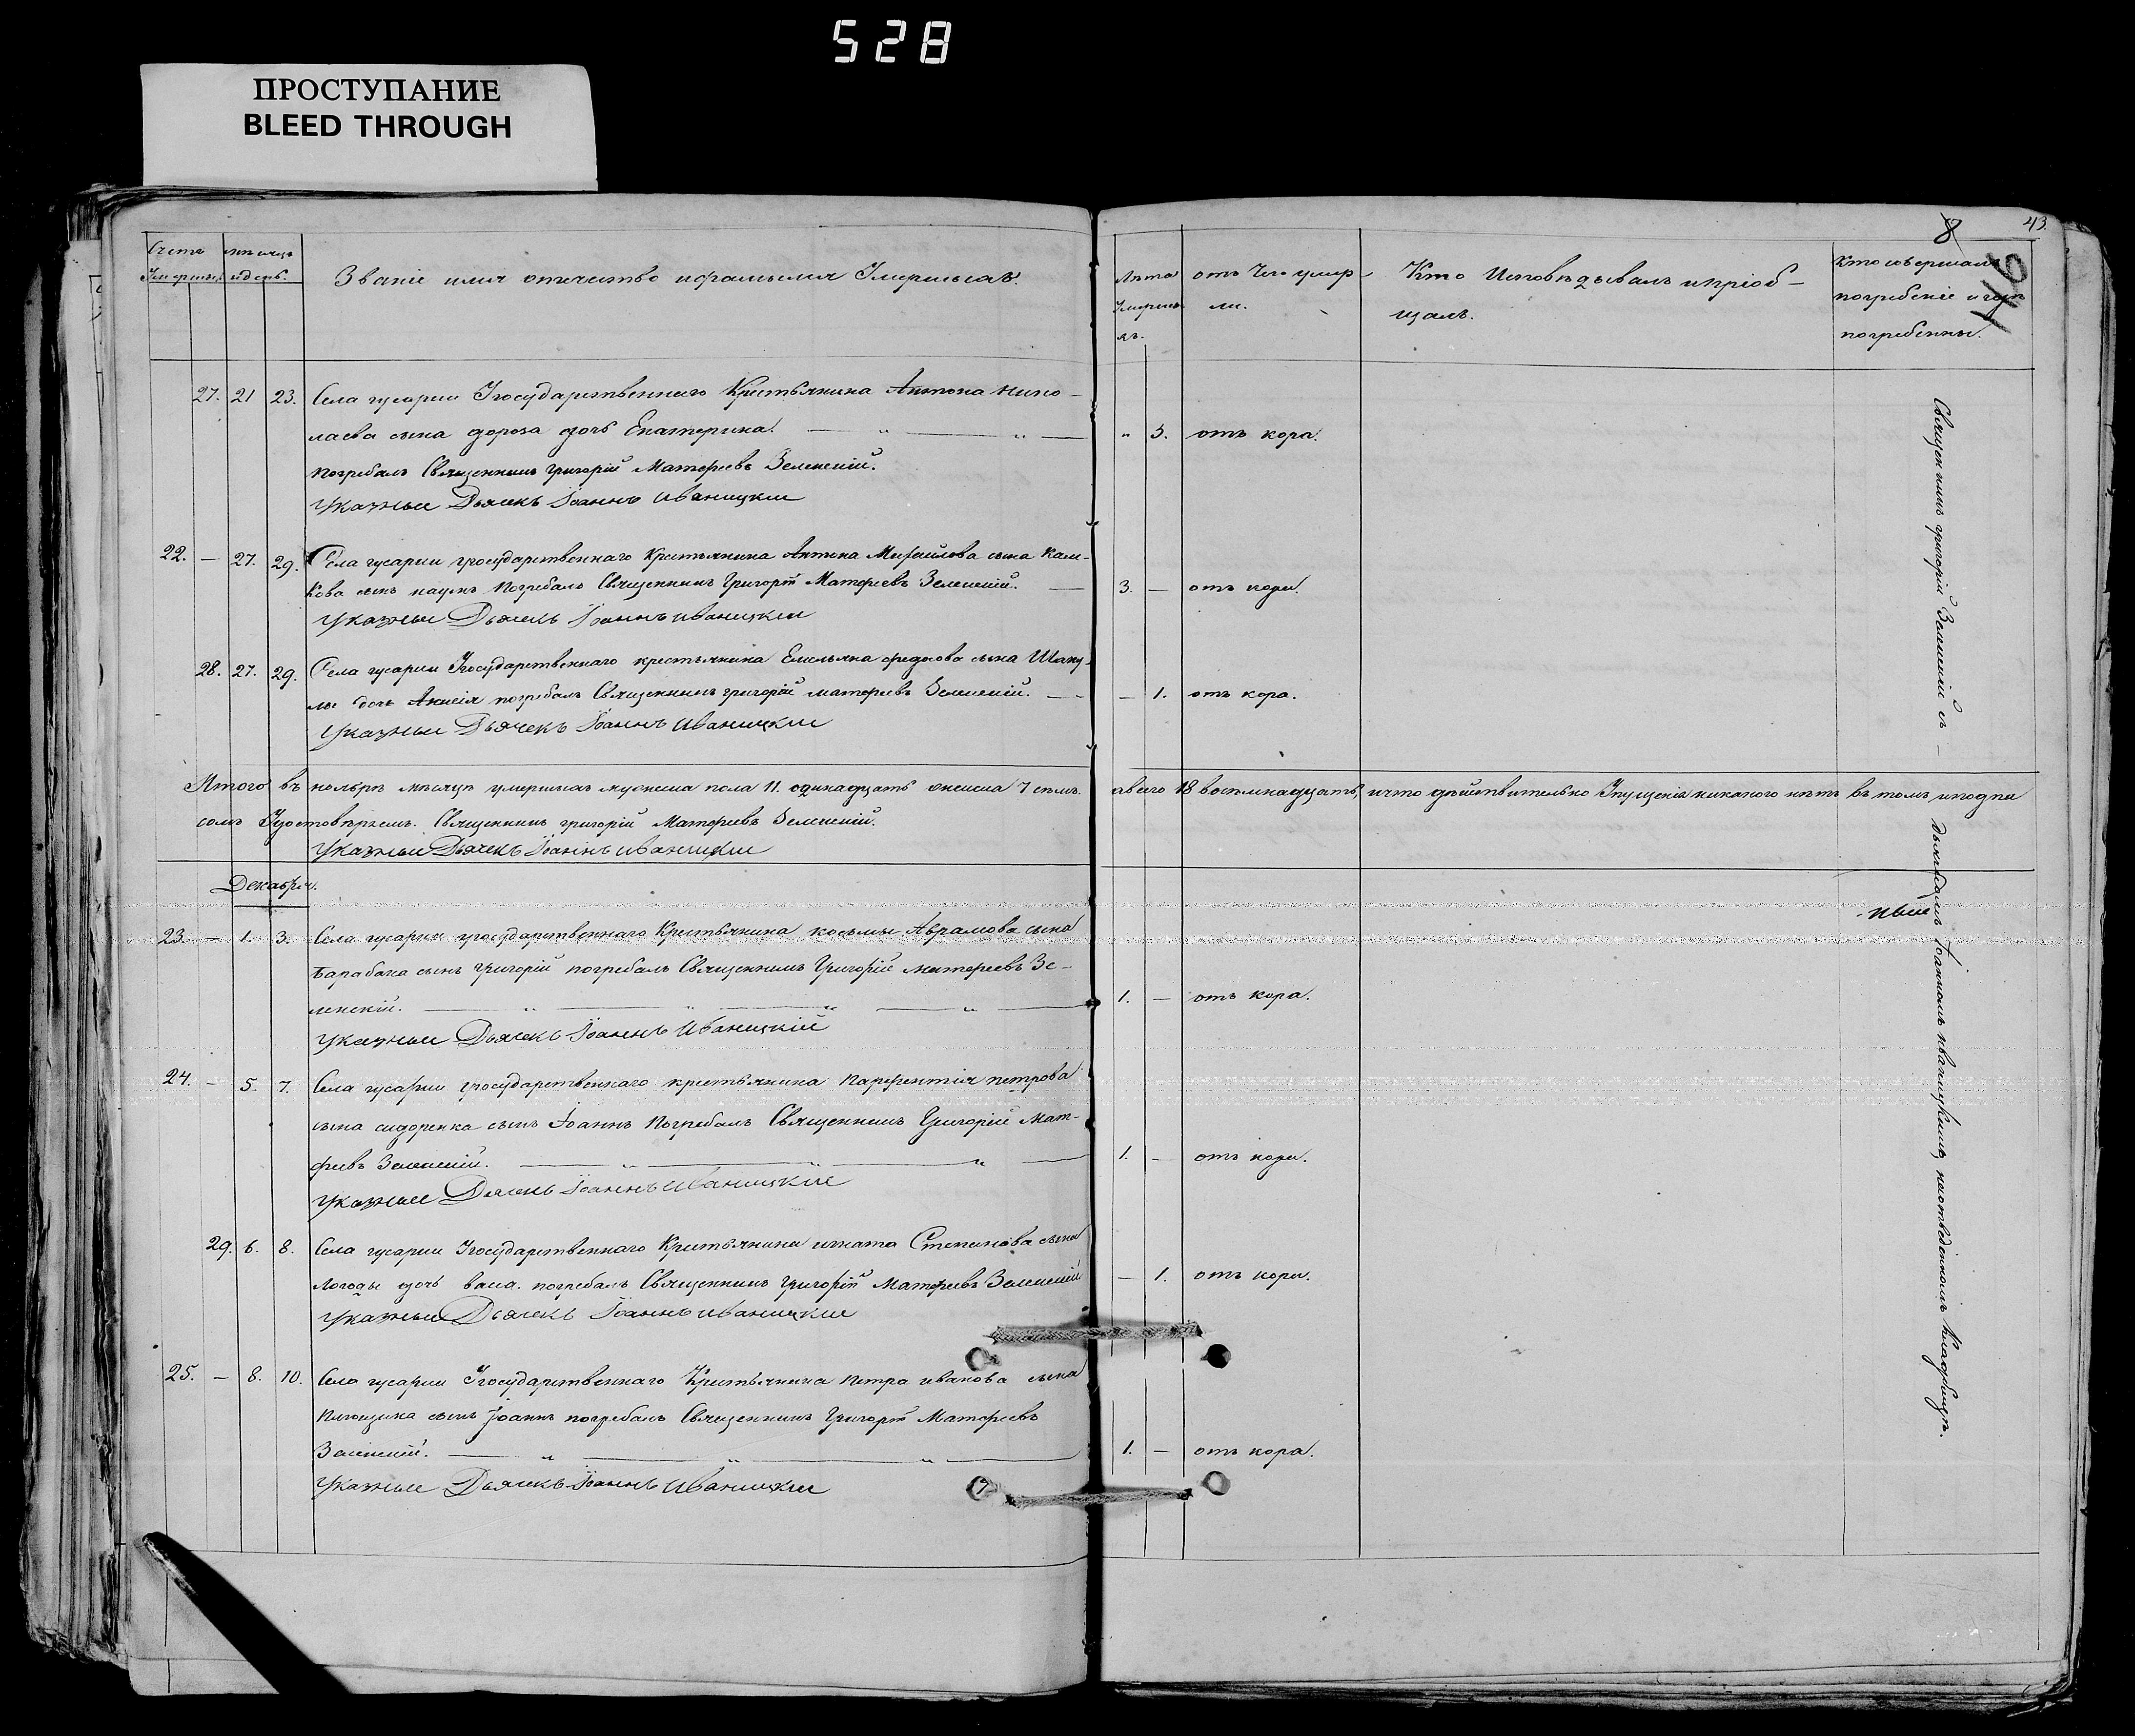 528
ПРОСТУПАНИЕ
BLEED THROUGH
8
43
Счетъ
Умершихъ
мѣсяцъ
и день.
Званіе имя отечество и фамилия Умершихъ.
Лѣта
Умерших
хъ.
отъ Чего умер
ли.
Кто Исповѣдывалъ и пріоб-
щалъ.
Кто совершалъ
погребеніе и гдѣ
погребенны.
27. 21 23. Села гусарки государственнаго Крестьянина Антона Нико-
лаева сына дочь Екатерина. " 3. отъ кора.
погребалъ Священникъ Григорій Матфеевъ Зеленскій.
Указные Дьячекъ Іоаннъ Иваницкіи
22. — 27. 29. Села гусарки государственнаго Крестьянина Антона Михайлова сына Кал-
кова сынъ наумъ Погребалъ Священникъ Григорій Матфеевъ Зеленскій. 3. — отъ кори.
Указные Дьячекъ Іоаннъ Иваницкіи
28. 27. 29. Села гусарки Государственнаго крестьянина Емельяна федорова сына
дочь Анисія погребалъ Священникъ григорій матфеевъ Зеленскій. — 1. отъ кора.
Указные Дьячекъ Іоаннъ Иваницкіи
Итого въ ноябрѣ мѣсяцѣ умершихъ мужеска пола 11. одинадцать женска 7 семь. а всего 18 восемнадцать, и что дѣйствительно Упущенія никакого нѣтъ въ томъ и подпи
сомъ Удостовѣряемъ. Священникъ григорій Матфеевъ Зеленскій.
Указные Дьячекъ Іоаннъ Иваницкіи
Декабрь.
23. — 1. 3. Села гусарки государственнаго Крестьянина косьмы Аврамова сына
Барабаха сынъ григорій погребалъ Священникъ Григорій матфеевъ Зе-
ленскій. 1. — отъ кора.
Указные Дьячекъ Іоаннъ Иваницкій
24. — 5. 7. Села гусарки государственнаго крестьянина парфентія петрова
сына сидоренка сынъ Іоаннъ Погребалъ Священникъ Григорій Мат-
феевъ Зеленскій. 1. — отъ кори.
Указные Дьячекъ Іоаннъ Иваницкіи
29. 6. 8. Села гусарки Государственнаго Крестьянина игната Степанова сына
дочь васа. погребалъ Священникъ Григорій Матфеевъ Зеленскій — 1. отъ кори.
Указные Дьячекъ Іоаннъ Иваницкіи
25. — 8. 10. Села гусарки Государственнаго Крестьянина Петра иванова сына
сынъ Іоаннъ погребалъ Священникъ Григорій Матфеевъ
Зеленскій. 1. — отъ кора.
Указные Дьячекъ Іоаннъ Иваницкіи
Священникъ григорій Зеленскій съ — дьячкомъ Іоанномъ иваницкимъ, на отведенномъ Кладбищѣ.